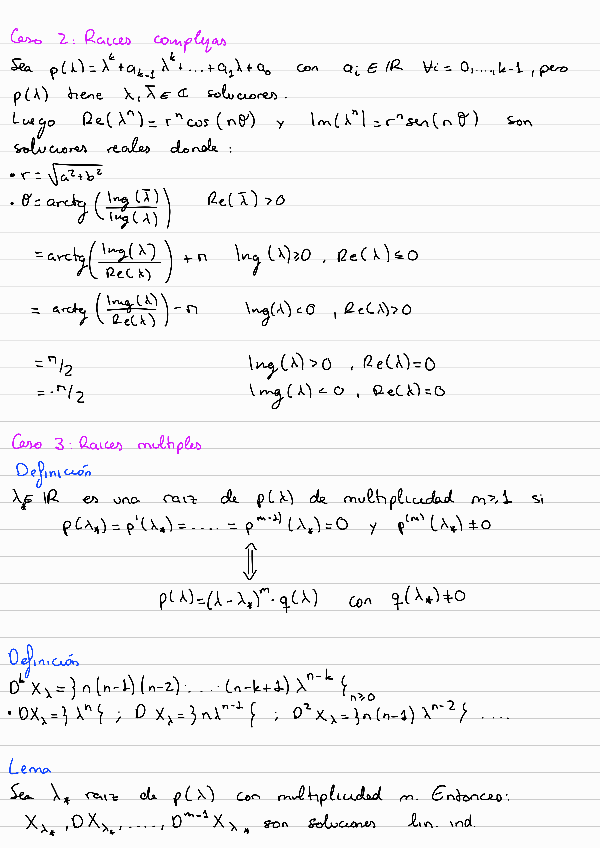 Caso 2: Raices complejas
Sea p(λ)=λ^k+a_{k-1}λ^k+...+a_1λ+a_0 con a_i ∈ IR ∀i = 0,...,k-1, pero
p(λ) tiene λ, λ̄ ∈ ℂ soluciones.
Luego Re(λ^n)=r^n cos(nθ) y Im(λ^n)=r^n sen(nθ) son
soluciones reales donde:
• r = √(a²+b²)
• θ = arctg (Img(λ̄)/Img(λ)) Re(λ̄) > 0
= arctg (Img(λ)/Re(λ)) + π Img(λ) ≥ 0, Re(λ) ≤ 0
= arctg (Img(λ)/Re(λ)) - π Img(λ) < 0, Re(λ) > 0
= π/2 Img(λ) > 0, Re(λ) = 0
= -π/2 Img(λ) < 0, Re(λ) = 0
Caso 3: Raices multiples
Definición
λ_* ∈ IR es una raiz de p(λ) de multiplicidad m ≥ 1 si
p(λ_*) = p'(λ_*) = .... = p^{m-1)}(λ_*) = 0 y p^{(m)}(λ_*) ≠ 0
⇕
p(λ) = (λ - λ_*)^m · q(λ) con q(λ_*) ≠ 0
Definición
D^k X_λ = }n(n-1)(n-2)·....·(n-k+1) λ^{n-k}{_{n≥0}
• DX_λ = }λ^n{ ; D X_λ = }nλ^{n-1}{ ; D² X_λ = }n(n-1) λ^{n-2}{ ....
Lema
Sea λ_* raiz de p(λ) con multiplicidad m. Entonces:
X_{λ_*}, DX_{λ_*}, ...., D^{m-1} X_{λ_*} son soluciones lin. ind.